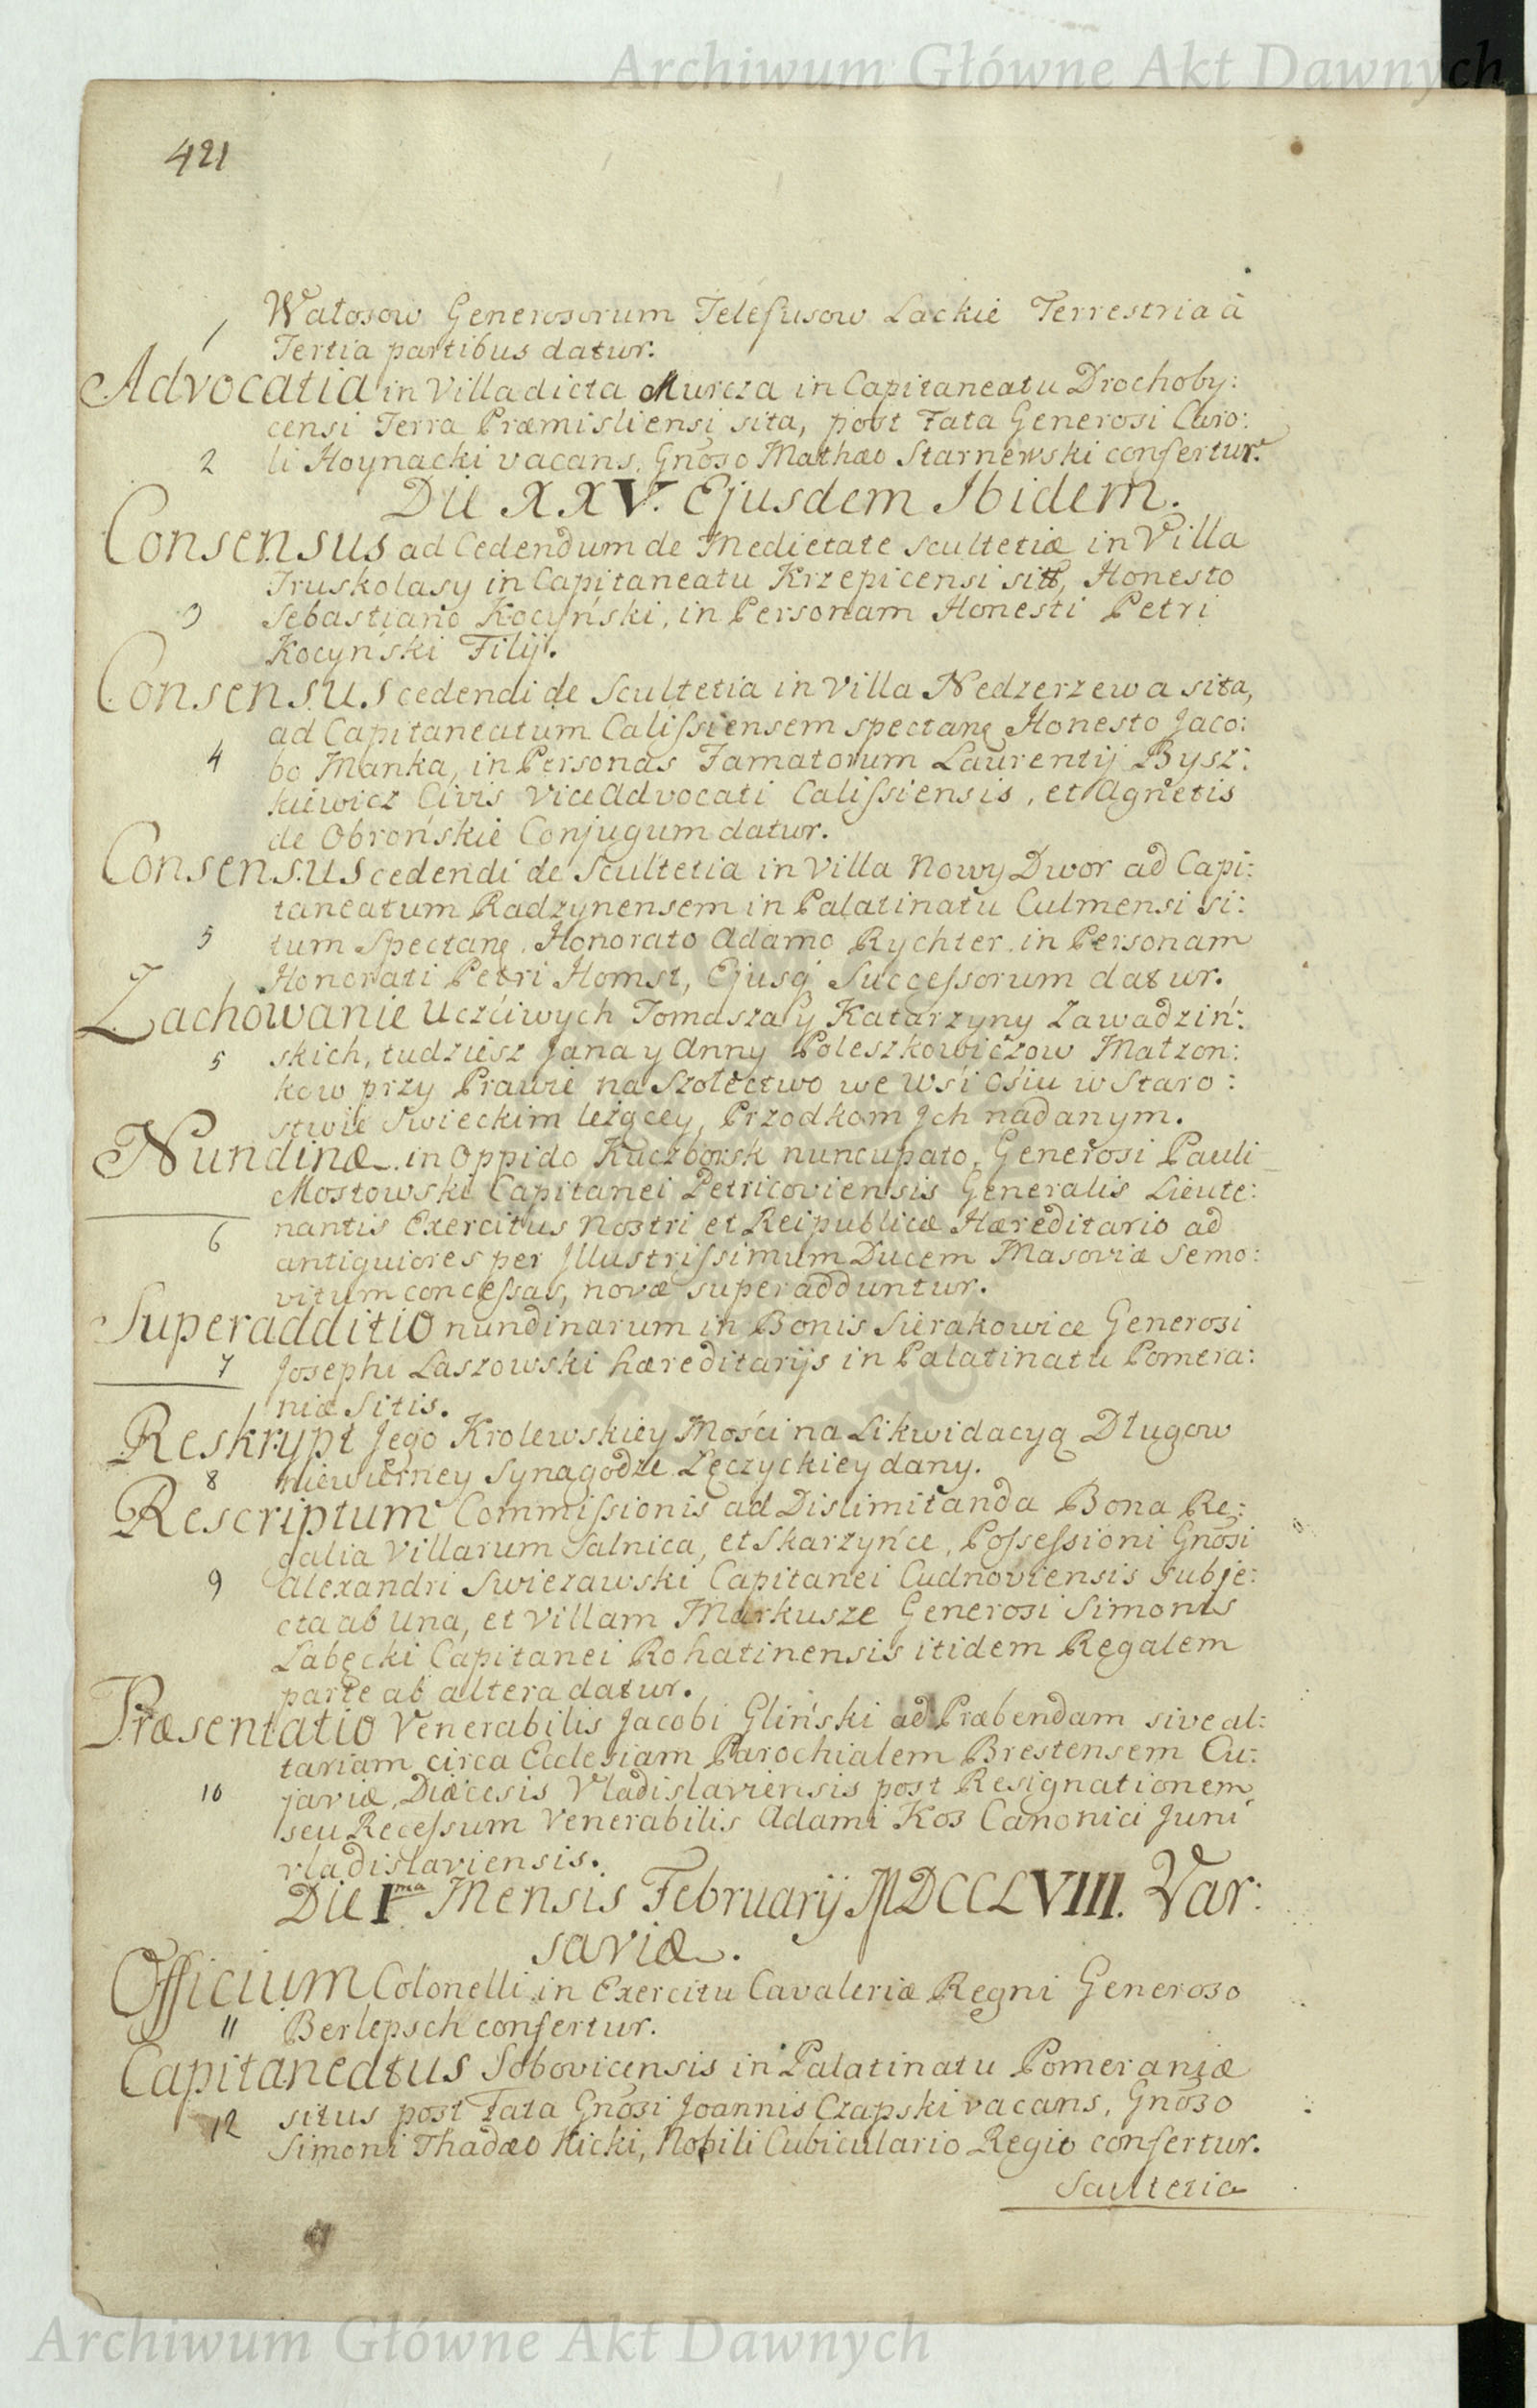 Archiwum Główne Akt Dawnych
421
Wałosow Generosorum Telefusow Lackie Terrestria à
1 Tertia partibus datur.
Advocatia in Villa dicta Murcza in Capitaneatu Drochoby:
censi Terra Præmisliensi sita, post Fata Generosi Caro:
2 li Hoynacki vacans, Gnoso Mathæo Starnewski confertur.
Die XXV. Ejusdem Ibidem.
Consensus ad Cedendum de Medietate Scultetiæ in Villa
Truskolasy in Capitaneatu Krzepicensi Honesto
3 Sebastiano Kocyński, in Personam Honesti Petri
Kocyński Filij.
Consensus cedendi de Scultetia in Villa Nedzerzewa sita,
ad Capitaneatum Calissiensem spectane Honesto Jaco:
4 bo Manka, in Personas Famatorum Laurentij Bysz:
kiewicz Civis ViceAdvocati Calissiensis, et Agnetis
de Obrońskie Conjugum datur.
Consensus cedendi de Scultetia in Villa Nowy Dwor ad Capi:
taneatum Radzynensem in Palatinatu Culmensi si:
5 tum Spectane, Honorato Adamo Rychter in Personam
Honorati Petri Homst, Ejusq Successorum datur.
Zachowanie Uczciwych Tomasza y Katarzyny Zawadziń:
5 skich, tudziesz Jana y Anny Poleszkowiczow Małzon:
kow przy Prawie na Szołectwo we Wsi Osiu w Staro:
stwie Swieckim leżącey, Przodkom Jch nadanym.
Nundinæ in Oppido Kuczborsk nuncupato, Generosi Pauli
Mostowski Capitanei Petricoviensis Generalis Lieute:
6 nantis Exercitus Nostri et Reipublicæ Hæreditario ad
antiquiores per Jllustrissimum Ducem Masoviæ Semo:
vitum concessas, novæ superadduntur.
Superadditio nundinarum in Bonis Sierakowice Generosi
7 Josephi Laszowski hæreditarijs in Palatinatu Pomera:
niæ Sitis.
Reskrypt Jego Krolewskiey Mości na Likwidacyą Długow
8 niewierney Synagodze Łęczyckiey dany.
Rescriptum Commissionis ad Dislimitanda Bona Re:
galia Villarum Salnica, et Skarzyńce, Possessioni Gnosi
9 Alexandri Swiezawski Capitanei Cudnoviensis subje:
cta ab Una, et Villam Markusze Generosi Simonis
Łabęcki Capitanei Rohatinensis itidem Regalem
parte ab altera datur.
Præsentatio Venerabilis Jacobi Gliński ad Præbendam sive al:
tariam circa Ecclesiam Parochialem Brestensem Cu:
10 javiæ, Diæcesis Vladislaviensis post Resignationem
seu Recessum Venerabilis Adami Kos Canonici Juni
vladislaviensis.
Die Ima Mensis Februarij MDCCLVIII. Var:
saviæ.
Officium Colonelli in Exercitu Cavaleriæ Regni Generoso
11 Berlepsch confertur.
Capitaneatus Sobovicensis in Palatinatu Pomeraniæ
situs post Fata Gnosi Joannis Czapski vacans, Gnoso
12 Simoni Thadæo Nicki, Nobili Cubiculario Regio confertur.
Scultetia
Archiwum Główne Akt Dawnych